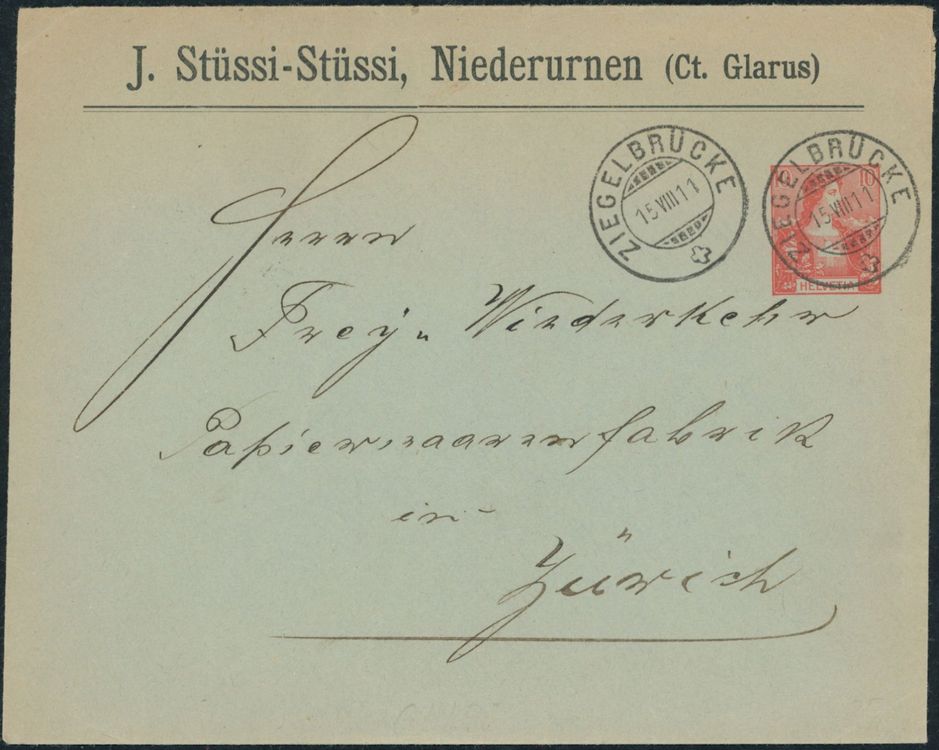 J. Stüssi-Stüssi, Niederurnen (Ct. Glarus)
ZIEGELBRÜCKE
15 VIII 11
ZIEGELBRÜCKE
15 VIII 11
10 10
HELVETIA
Herren
Frey u Wiederkehr
Papierwaarenfabrik
in
Zürich